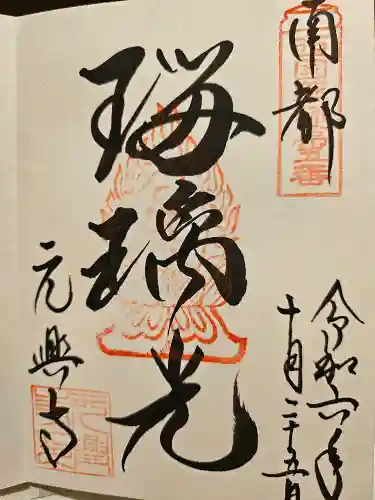 南都
令和六年
十月二十五日
瑠璃光
元興寺